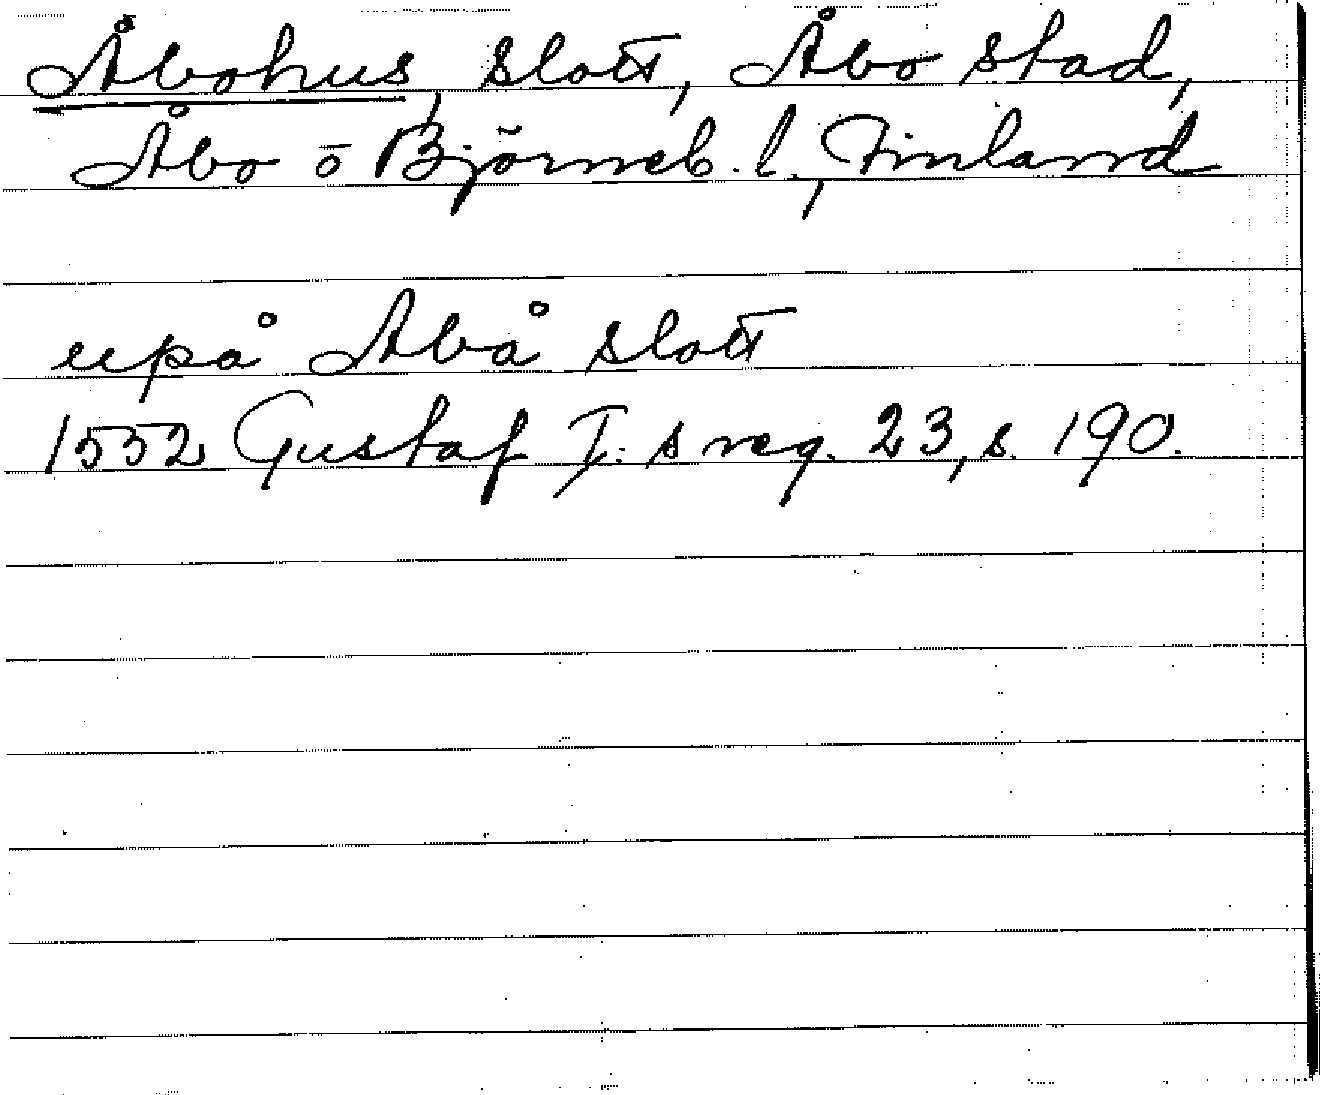 Åbohus, slott, Åbo stad,
Åbo o Björneb. l., Finland
upå Åbå slott
1552 Gustaf I:s reg. 23, s. 190.